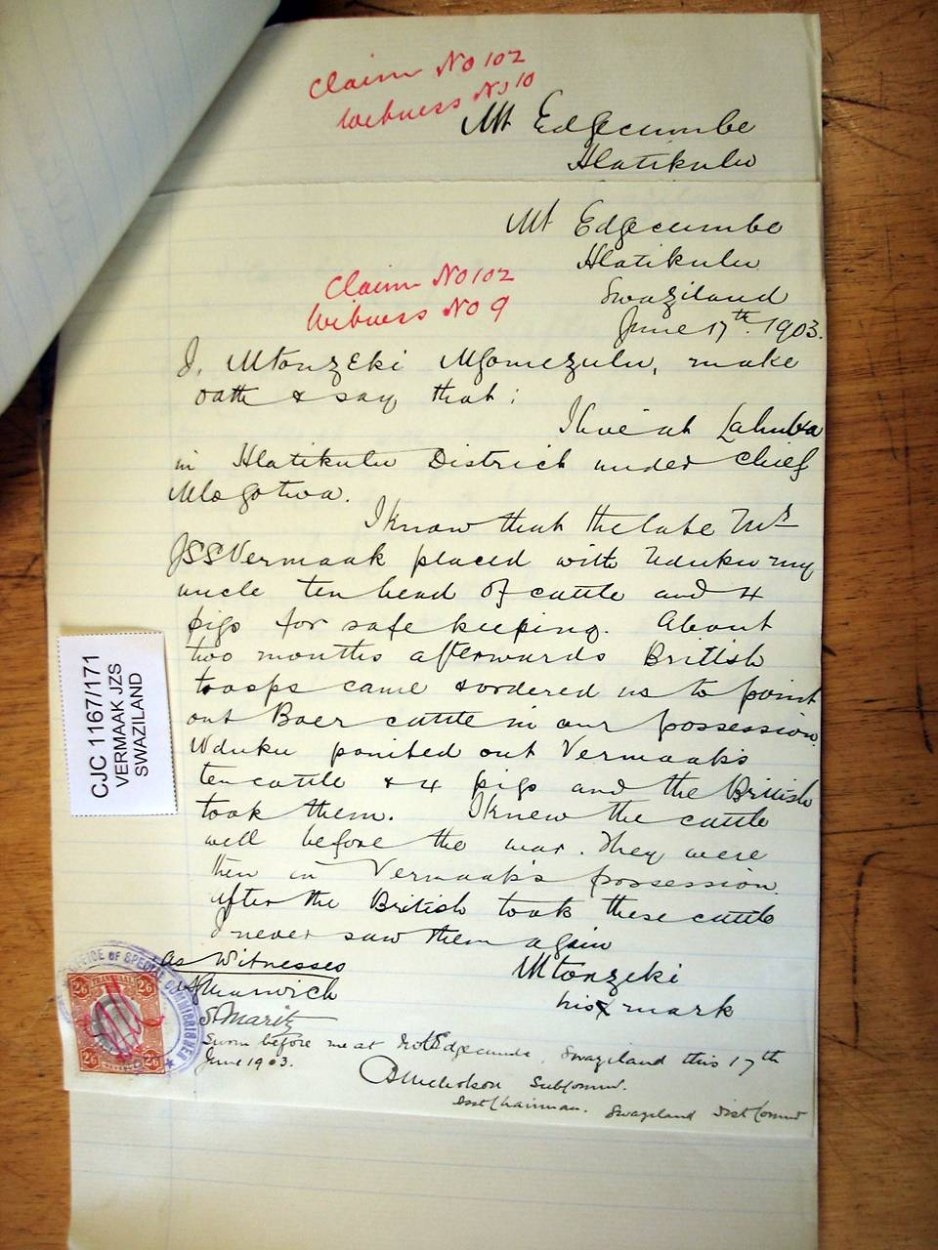 Claim No 102
Witness No 10
Mt Edgecumbe
Hlatikulu
Mt Edgecumbe
Hlatikulu
Swaziland
June 17th. 1903.
Claim No 102
Witness No 9
I, Mtonzeki Mgomezulu, make
oath & say that:
I live at
in Hlatikulu District under Chief
Mlogotwa.
I know that the late Mr
JSS Vermaak placed with Uduku my
uncle ten head of cattle and 4
pigs for safe keeping. About
two months afterwards British
troops came & ordered us to point
out Boer cattle in our possession.
Uduku pointed out Vermaak's
ten cattle & 4 pigs and the British
took them. I knew the cattle
well before the war. They were
then in Vermaak's possession.
After the British took these cattle
I never saw them again
As Witnesses
Marwick
S Maritz
Mtonzeki
his X mark
Sworn before me at Mt Edgecumbe, Swaziland this 17th
June 1903.
Nicholson Subcommr.
Chairman. Swaziland Dist Commr
CJC 1167/171
VERMAAK JZS
SWAZILAND
OFFICE OF SPECIAL COMMISSIONER
TRANSVAAL
2/6 2/6
2/6 2/6